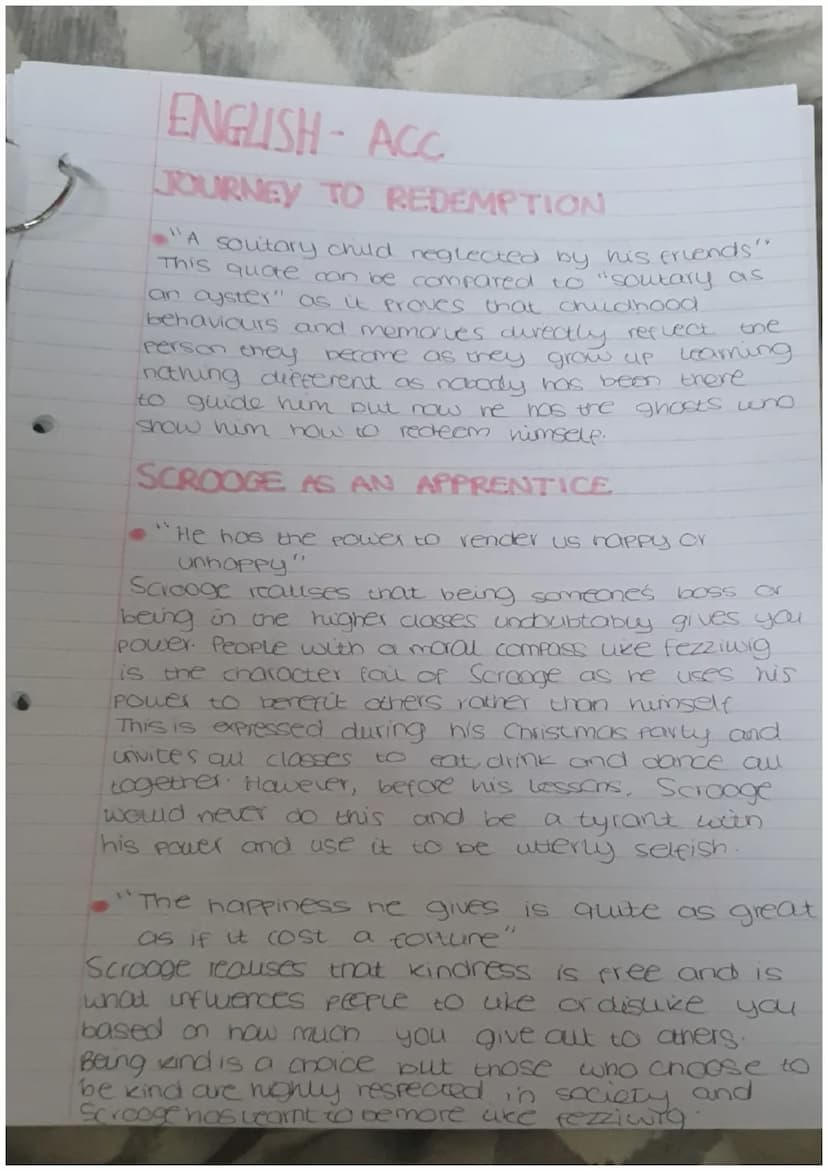 ENGLISH - ACC
JOURNEY TO REDEMPTION
• "A solitary child neglected by his friends"
This quote can be compared to "solitary as
an oyster" as it proves that childhood
behaviours and memories directly reflect the
person they become as they grow up learning
nothing different as nobody has been there
to guide him but now he has the ghosts who
show him how to redeem himself.
SCROOGE AS AN APPRENTICE
• "He has the power to render us happy or
unhappy"
Scrooge realises that being someone's boss or
being in the higher classes undoubtably gives you
power. People with a moral compass like fezziwig
is the character foil of Scrooge as he uses his
power to benefit others rather than himself
This is expressed during his Christmas Party and
invites all classes to eat, drink and dance all
together. However, before his lessons, Scrooge
would never do this and be a tyrant with
his power and use it to be utterly selfish.
• "The happiness he gives is quite as great
as if it cost a fortune"
Scrooge realises that kindness is free and is
what influences people to like or dislike you
based on how much you give out to others.
Being kind is a choice but those who choose to
be kind are highly respected in society and
Scrooge has learnt to be more like fezziwig.